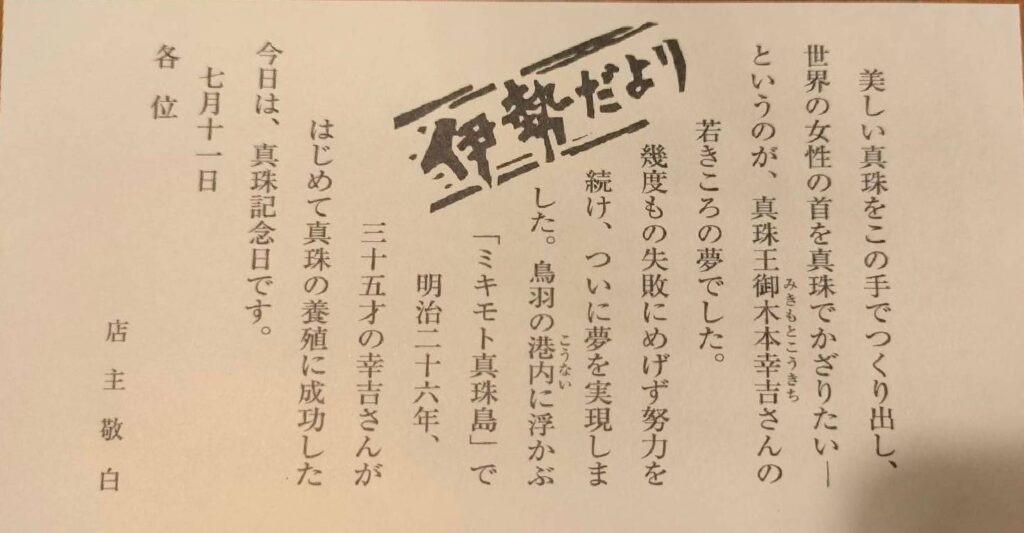 伊勢だより
美しい真珠をこの手でつくり出し、
世界の女性の首を真珠でかざりたい―
というのが、真珠王御木本幸吉さんの
みきもとこうきち
若きころの夢でした。
幾度もの失敗にめげず努力を
続け、ついに夢を実現しま
した。鳥羽の港内に浮かぶ
こうない
「ミキモト真珠島」で
明治二十六年、
三十五才の幸吉さんが
はじめて真珠の養殖に成功した
今日は、真珠記念日です。
七月十一日
各位
店主敬白